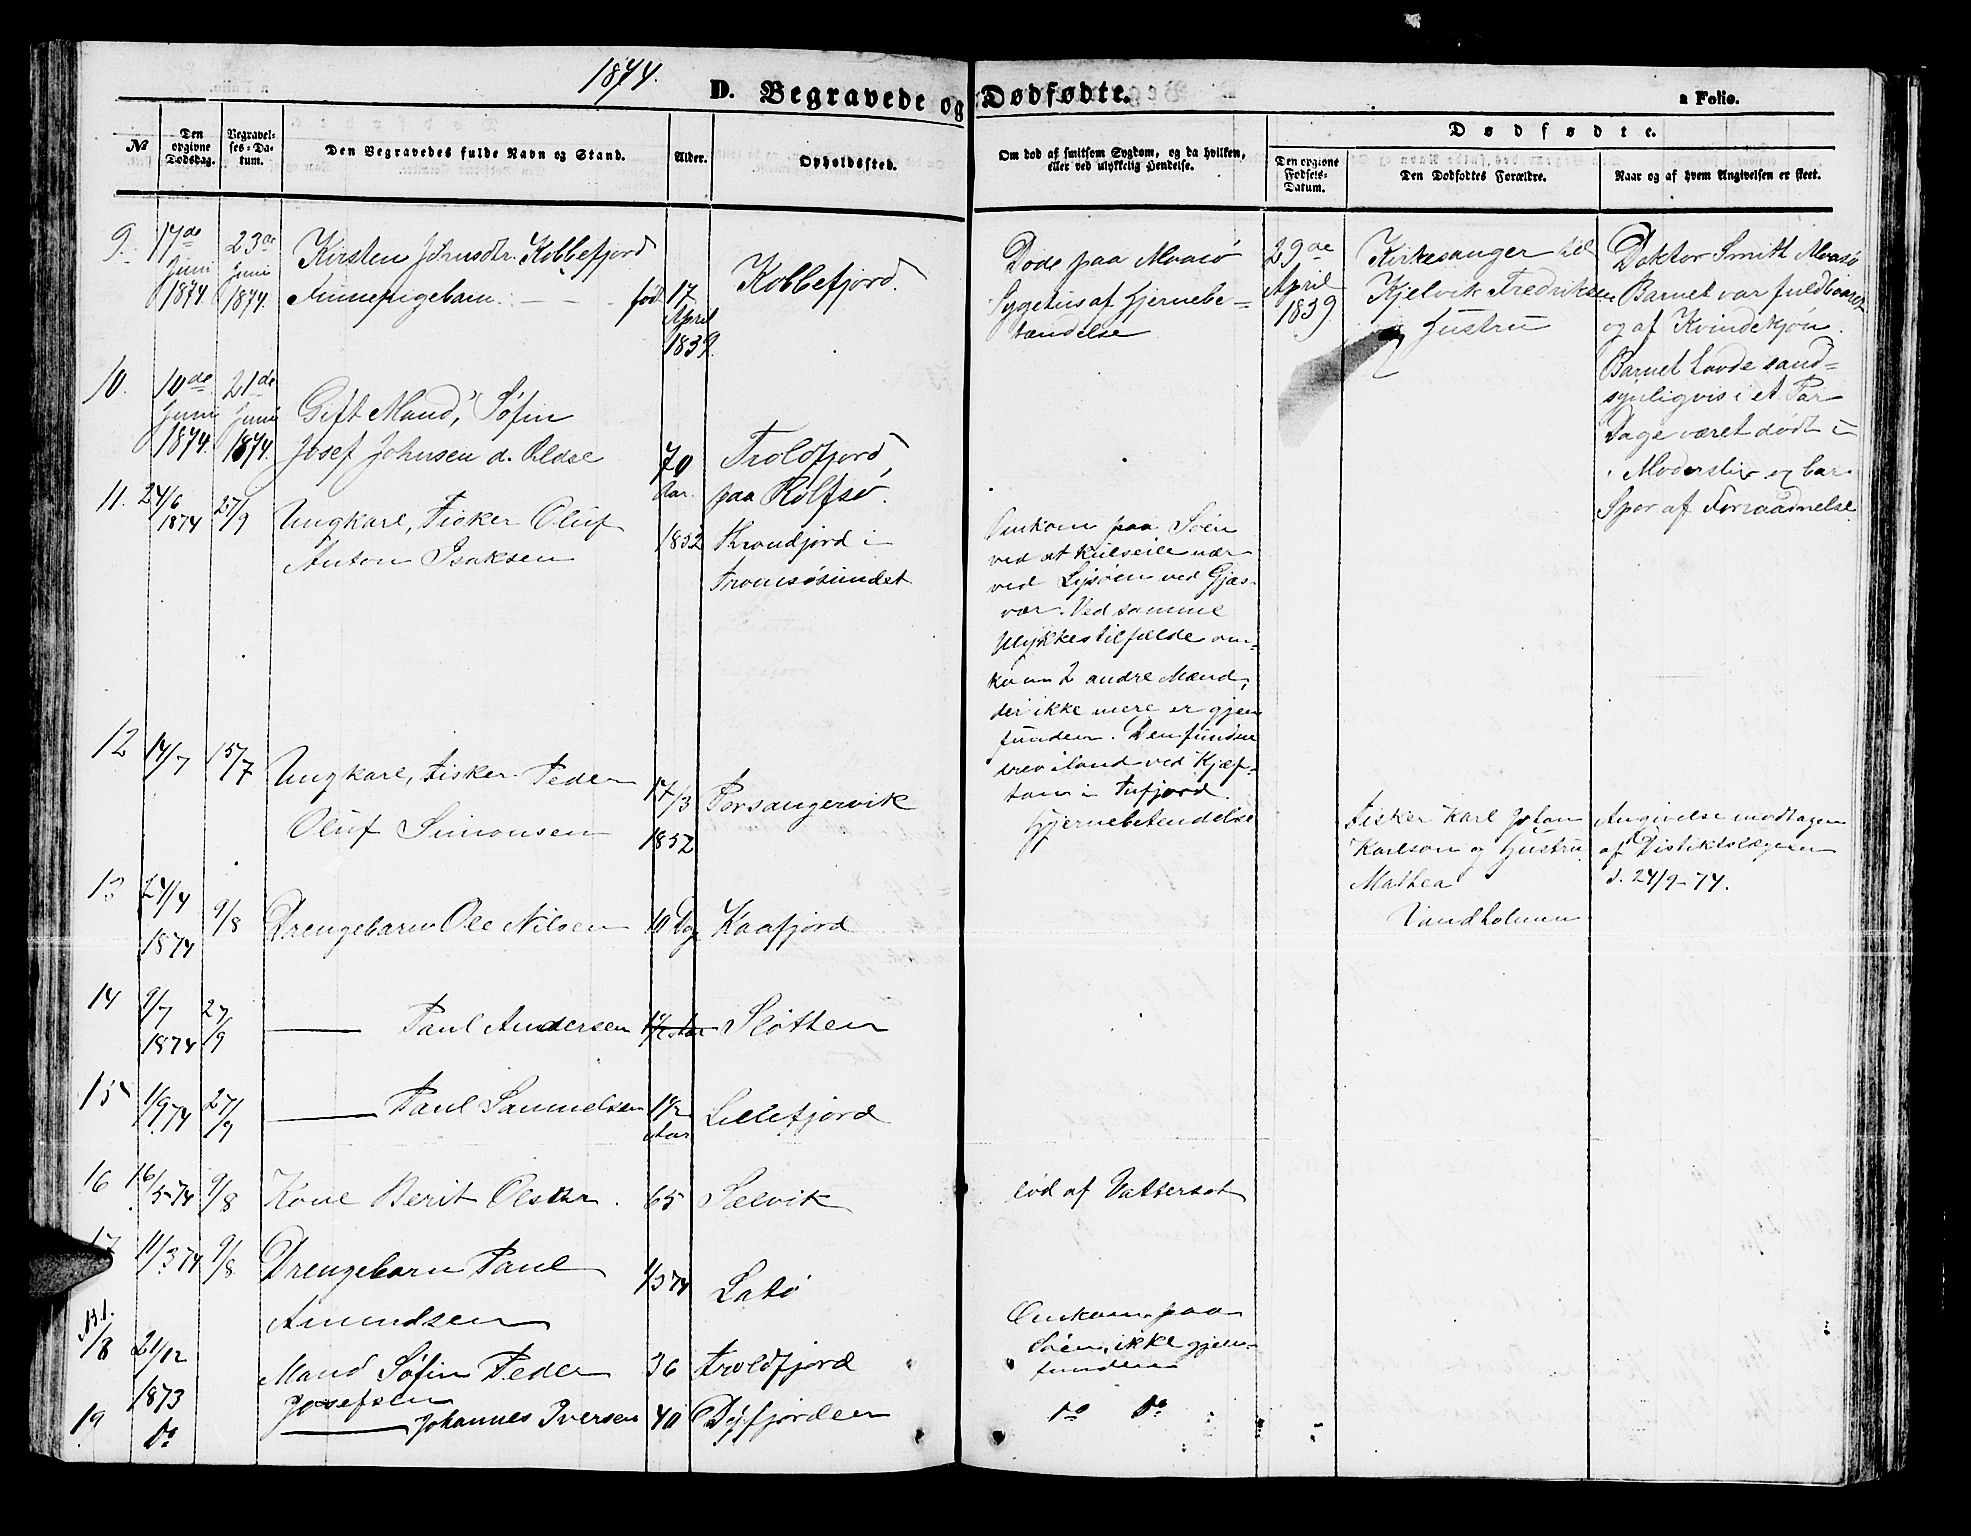 1874.
D. Begravede og Dødfødte.
a Folio.
№
Den opgivne Dødsdag.
Begravelses-Datum.
Den Begravedes fulde Navn og Stand.
Alder.
Opholdssted.
Om død af smitsom Sygdom, og da hvilken,
eller ved ulykkelig Hendelse.
Dødfødte.
Den opgivne Fødsels-Datum.
Den Dødfødtes Forældre.
Naar og af hvem Angivelsen er skeet.
9. 17de Juni 1874. 23de Juni 1874. Kirsten Johnsdtr. Kobbefjord
Finnepigebarn. født 17 April 1839.
Kobbefjord.
Døde paa Maasø
Sygehus af Hjernebe-
tændelse
29de April 1839
Kirkesanger til
Kjelvik Fredriksen
Hustru
Doktor Smitt Maasø
Barnet var fuldbaaret
og af Kvindekjøn.
Barnet havde sand-
synligvis i et Par
Dage været dødt i
Modersliv og bar
Spor af Forraadnelse.
10. 10de Juni 1874. 21de Juni 1874. Gift Mand, Søfin
Josef Johnsen d. Ældse
70 Aar.
Troldfjord
paa Rolfsø.
11. 24/6 1874 27/9 Ungkarl, Fisker Oluf
Anton Isaksen
1852
Strandjord i
Tromsøsundet
Omkom paa Søen
ved at Kulseile nær
ved Lysøen ved Gjes-
vær. Ved samme
Ulykkestilfælde om-
kom 2 andre Mænd,
der ikke mere er gjen
funden. Den fundne
drev iland ved Kjæf-
tan i Tufjord.
12 14/7 15/7 Ungkarl, Fisker Peder
Oluf Simonsen
17/3 1852
Porsangervik
Hjernebetendelse
Fisker Karl Johan
Karlson og Hustru
Mathea
Vandholmen
Angivelse modtagen
af Distiktslægen
d. 24/9-74.
13 24/4 1874 9/8 Drengebarn Ole Nilsen 10 Dg Kaafjord
14 9/7 1874 27/9 — Paul Andersen 1 1/2 Aar Sløtten
15 1/9 74 27/9 — Paul Samuelsen 1 1/2 Aar Lillefjord
16 16/5-74 9/8 Kone Berit Olsdtr. 65 Selvik
død af Vattersot
17 11/3 74 9/8 Drengebarn Paul
Amundsen
1/3 74 Latø
18 21/12 1873 Mand Søfin Peder
Josefsen
36 Troldfjord
Omkom paa
Søen, ikke gjen-
funden
19 Do — Johannes Iversen 40 Dyfjorden
Do Do